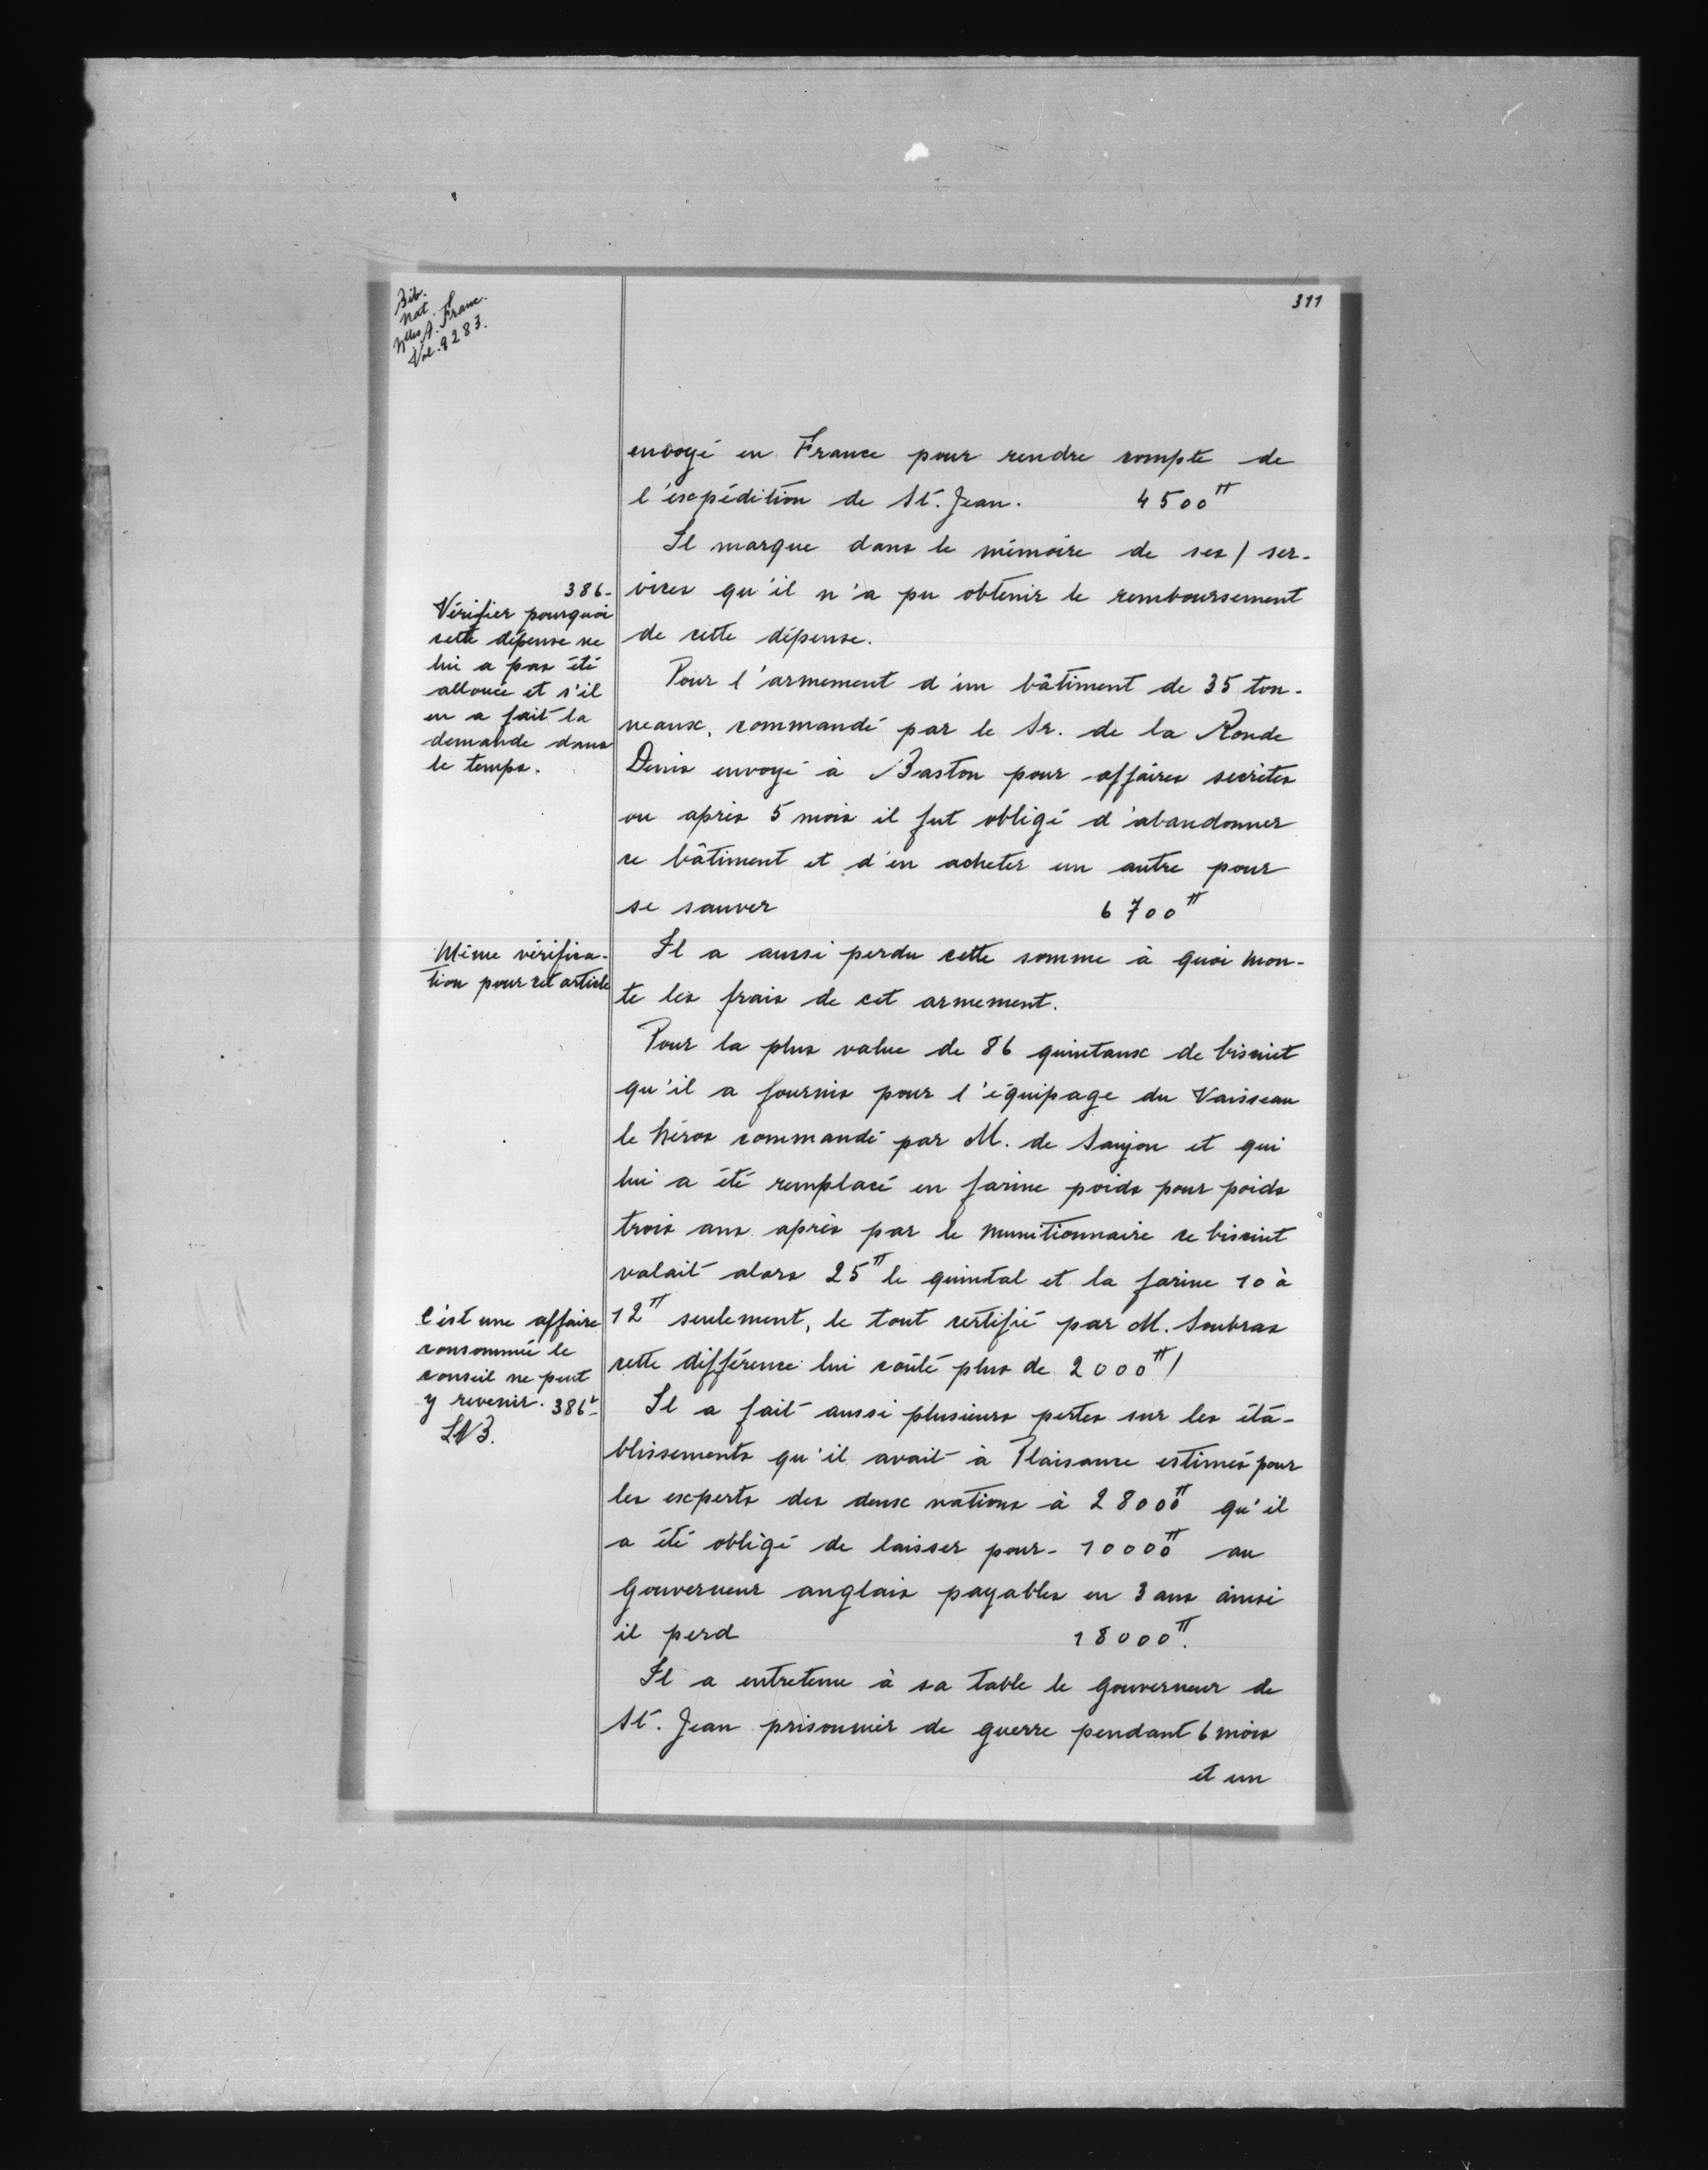 Bib.
Nat.
Nlles A. Franc.
Vol. 9283.
311
envoyé en France pour rendre compte de
l'expédition de St. Jean. 4500ᵗᵗ
Il marque dans le mémoire de ses / ser-
vices qu'il n'a pu obtenir le remboursement
de cette dépense.
386-
Vérifier pourquoi
cette dépense ne
lui a pas été
allouée et s'il
en a fait la
demande dans
le temps.
Pour l'armement d'un bâtiment de 35 ton-
neaux, commandé par le Sr. de la Ronde
Denis envoyé à Baston pour affaires secrètes
ou après 5 mois il fut obligé d'abandonner
ce bâtiment et d'en acheter un autre pour
se sauver 6700ᵗᵗ
Même vérifica-
tion pour cet article
Il a aussi perdu cette somme à quoi mon-
te les frais de cet armement.
Pour la plus value de 86 quintaux de biscuit
qu'il a fournis pour l'équipage du Vaisseau
le héros commandé par M. de Saujon et qui
lui a été remplacé en farine poids pour poids
trois ans après par le munitionnaire ce biscuit
valait alors 25ᵗᵗ le quintal et la farine 10 à
12ᵗᵗ seulement, le tout certifié par M. Soubras
cette différence lui coûté plus de 2000ᵗᵗ /
C'est une affaire
consommée le
conseil ne peut
y revenir. 386ᵛ-
LNB.
Il a fait aussi plusieurs pertes sur les éta-
blissements qu'il avait à Plaisance estimés pour
les experts des deux nations à 28000ᵗᵗ qu'il
a été obligé de laisser pour- 10000ᵗᵗ au
Gouverneur anglais payables en 3 ans ainsi
il perd 18000ᵗᵗ.
Il a entretenu à sa table le Gouverneur de
St. Jean prisonnier de guerre pendant 6 mois
et un